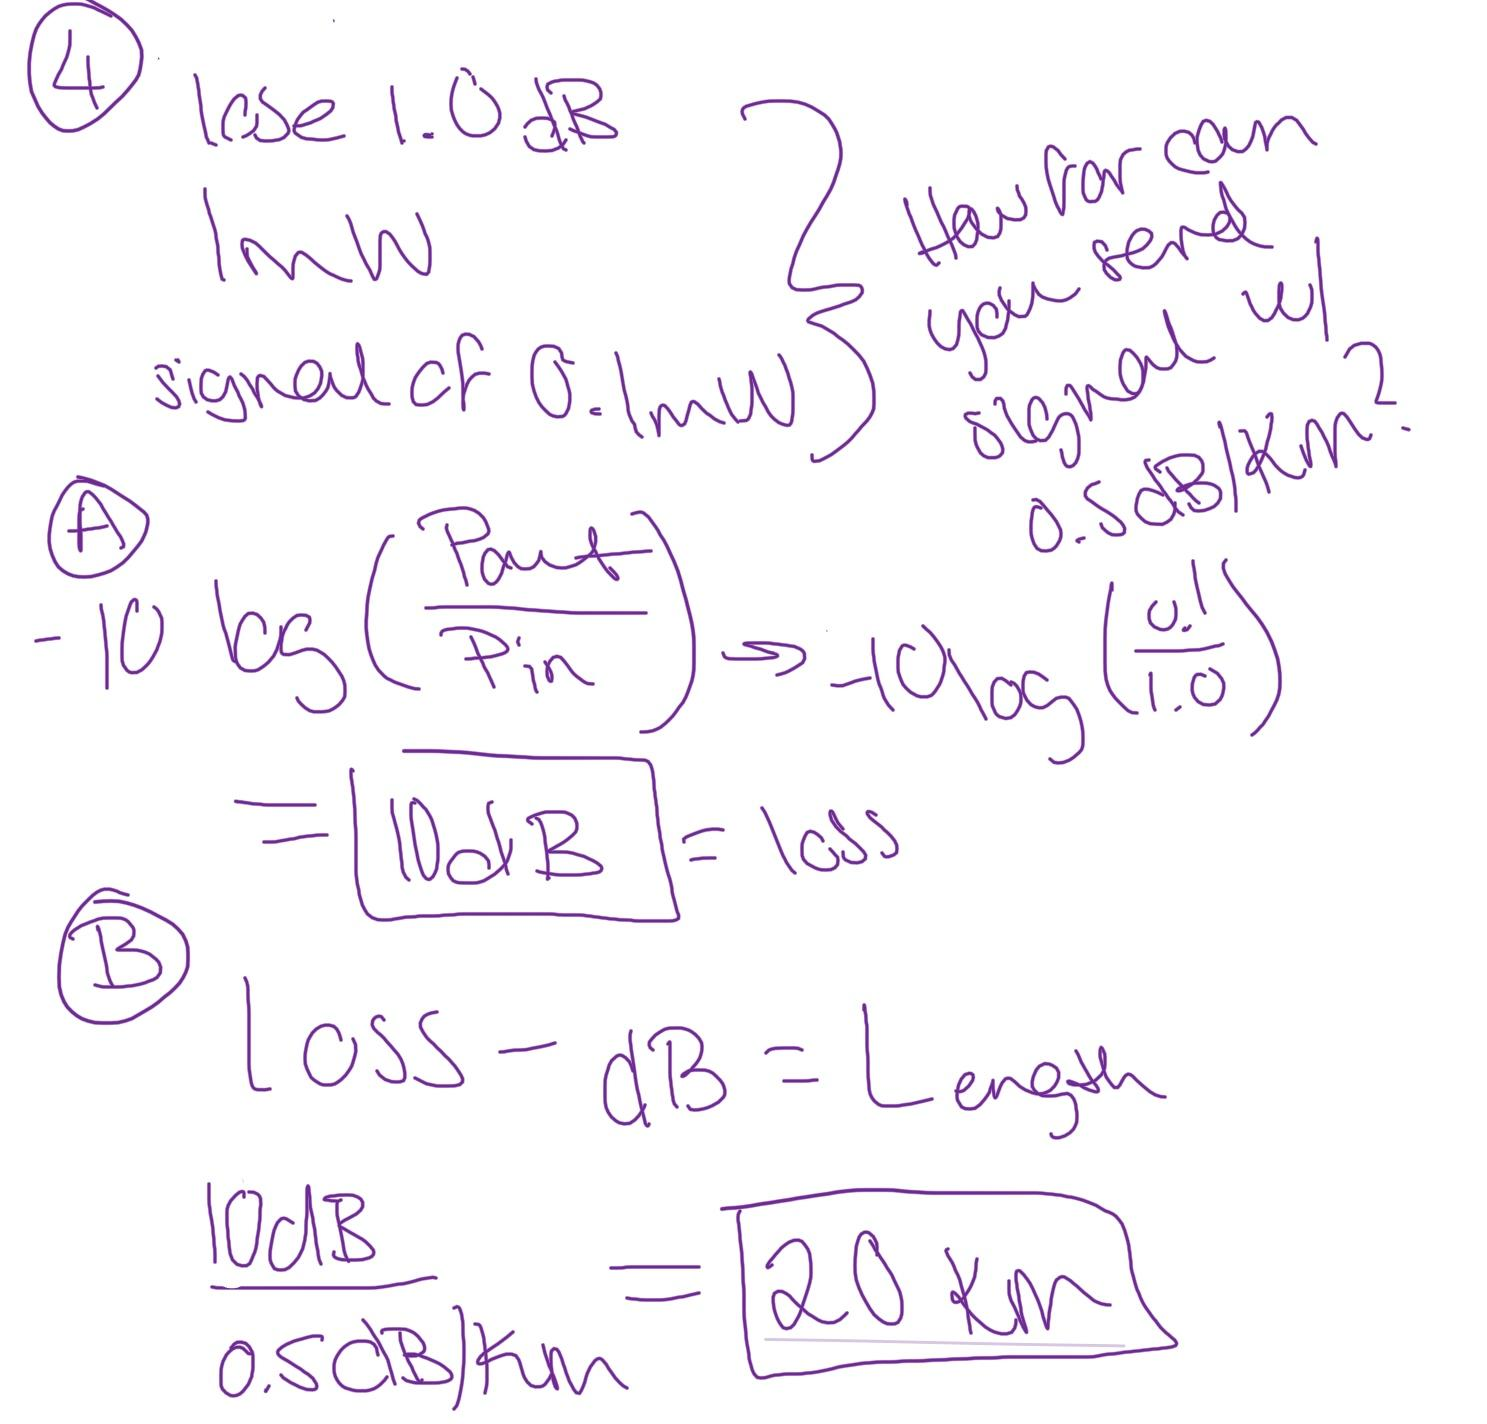 4
lose 1.0 dB
1mW
signal of 0.1mW
How far can
you send
signal w/
0.5dB/Km?
A
-10 log (Pout/Pin) → -10log (0.1/1.0)
= 10dB = loss
B
Loss - dB = Length
10dB
0.5dB/Km
= 20 Km